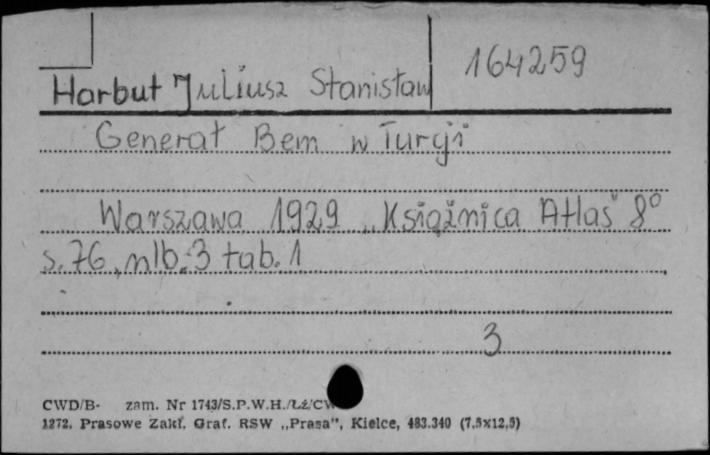 164259
Harbut Juliusz Stanisław
Generał Bem w Turcji
Warszawa 1929 „Książnica Atlas" 8°
s. 76, nlb. 3 tab. 1
3
CWD/B- zam. Nr 1743/S.P.W.H./Łź/CW
1272. Prasowe Zakł. Graf. RSW „Prasa", Kielce, 483.340 (7,5x12,5)